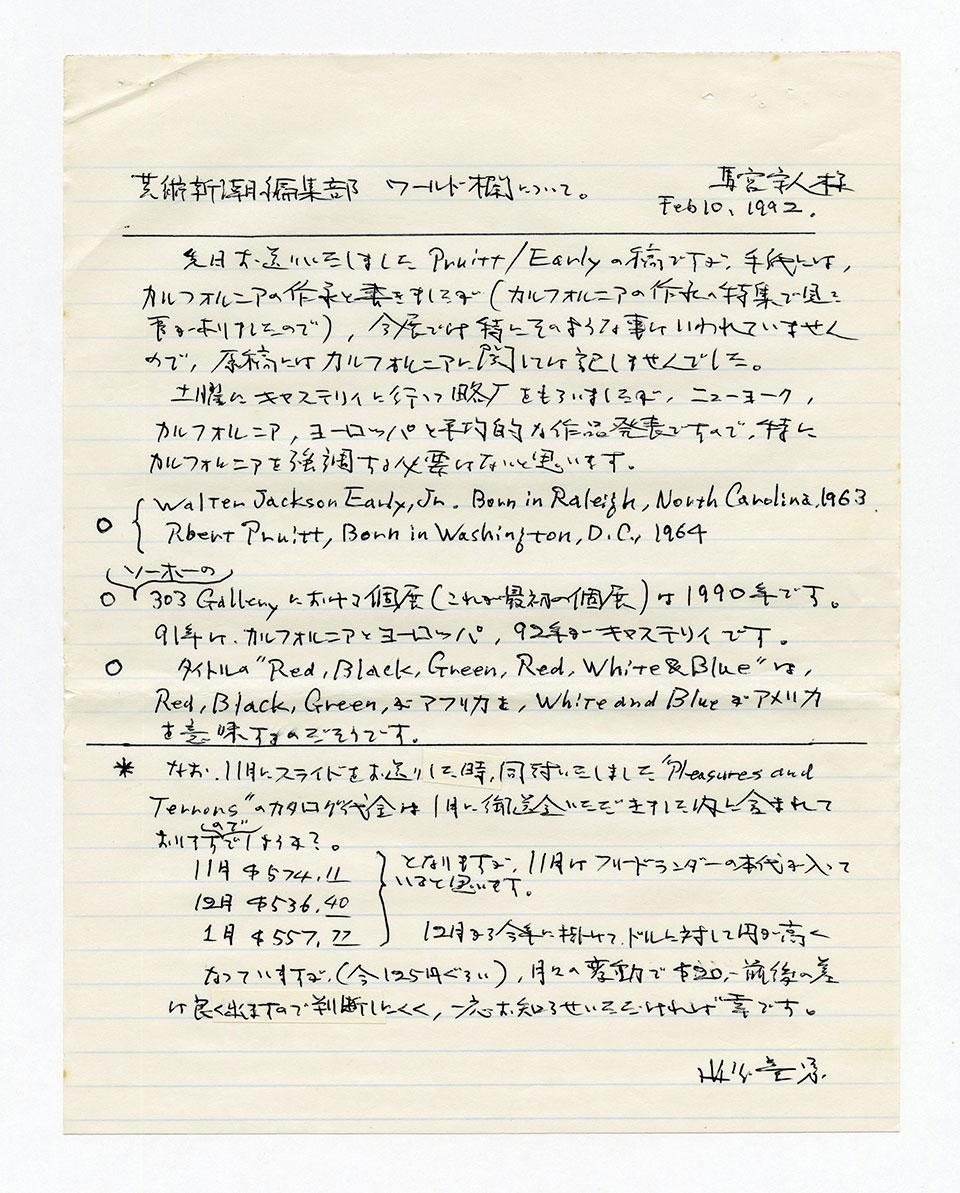 芸術新潮編集部 ワールド欄について。 馬宮守人様
Feb 10, 1992.
先日お送りいたしました Pruitt/Early の稿ですが、手紙には、
カルフォルニアの作家と書きましたが (カルフォルニアの作家の特集で見た
事がありましたので), 今展では特にそのような事はいわれていません
ので, 原稿にはカルフォルニアに関しては記しませんでした。
土曜にキャステリイに行って略歴をもらいましたが, ニューヨーク,
カルフォルニア, ヨーロッパと平均的な作品発表ですので, 特に
カルフォルニアを強調する必要はないと思います。
○ Walter Jackson Early, Jr. Born in Raleigh, North Carolina, 1963.
Rbert Pruitt, Born in Washington, D.C., 1964
ソーホーの
○ 303 Gallery における個展 (これが最初の個展) は 1990年です。
91年は、カルフォルニアとヨーロッパ, 92年がキャステリイです。
○ タイトルの "Red, Black, Green, Red, White & Blue" は,
Red, Black, Green, がアフリカを, White and Blue がアメリカ
を意味するのだそうです。
* なお、11月にスライドをお送りした時, 同封いたしました "Pleasures and
Terrors" のカタログ代金は 1月に御送金いただきました内に含まれて
ので
おりますでしょうか?。
11月 $574.11
となりますが, 11月はフリードランダーの本代が入って
いると思います。
12月 $536.40
1月 $557.77
12月から今年に掛けて、ドルに対して円が高く
なっていますが, (今125円ぐらい), 月々の変動で $20,-前後の差
は良く出ますので判断しにくく, 一応お知らせいただければ幸です。